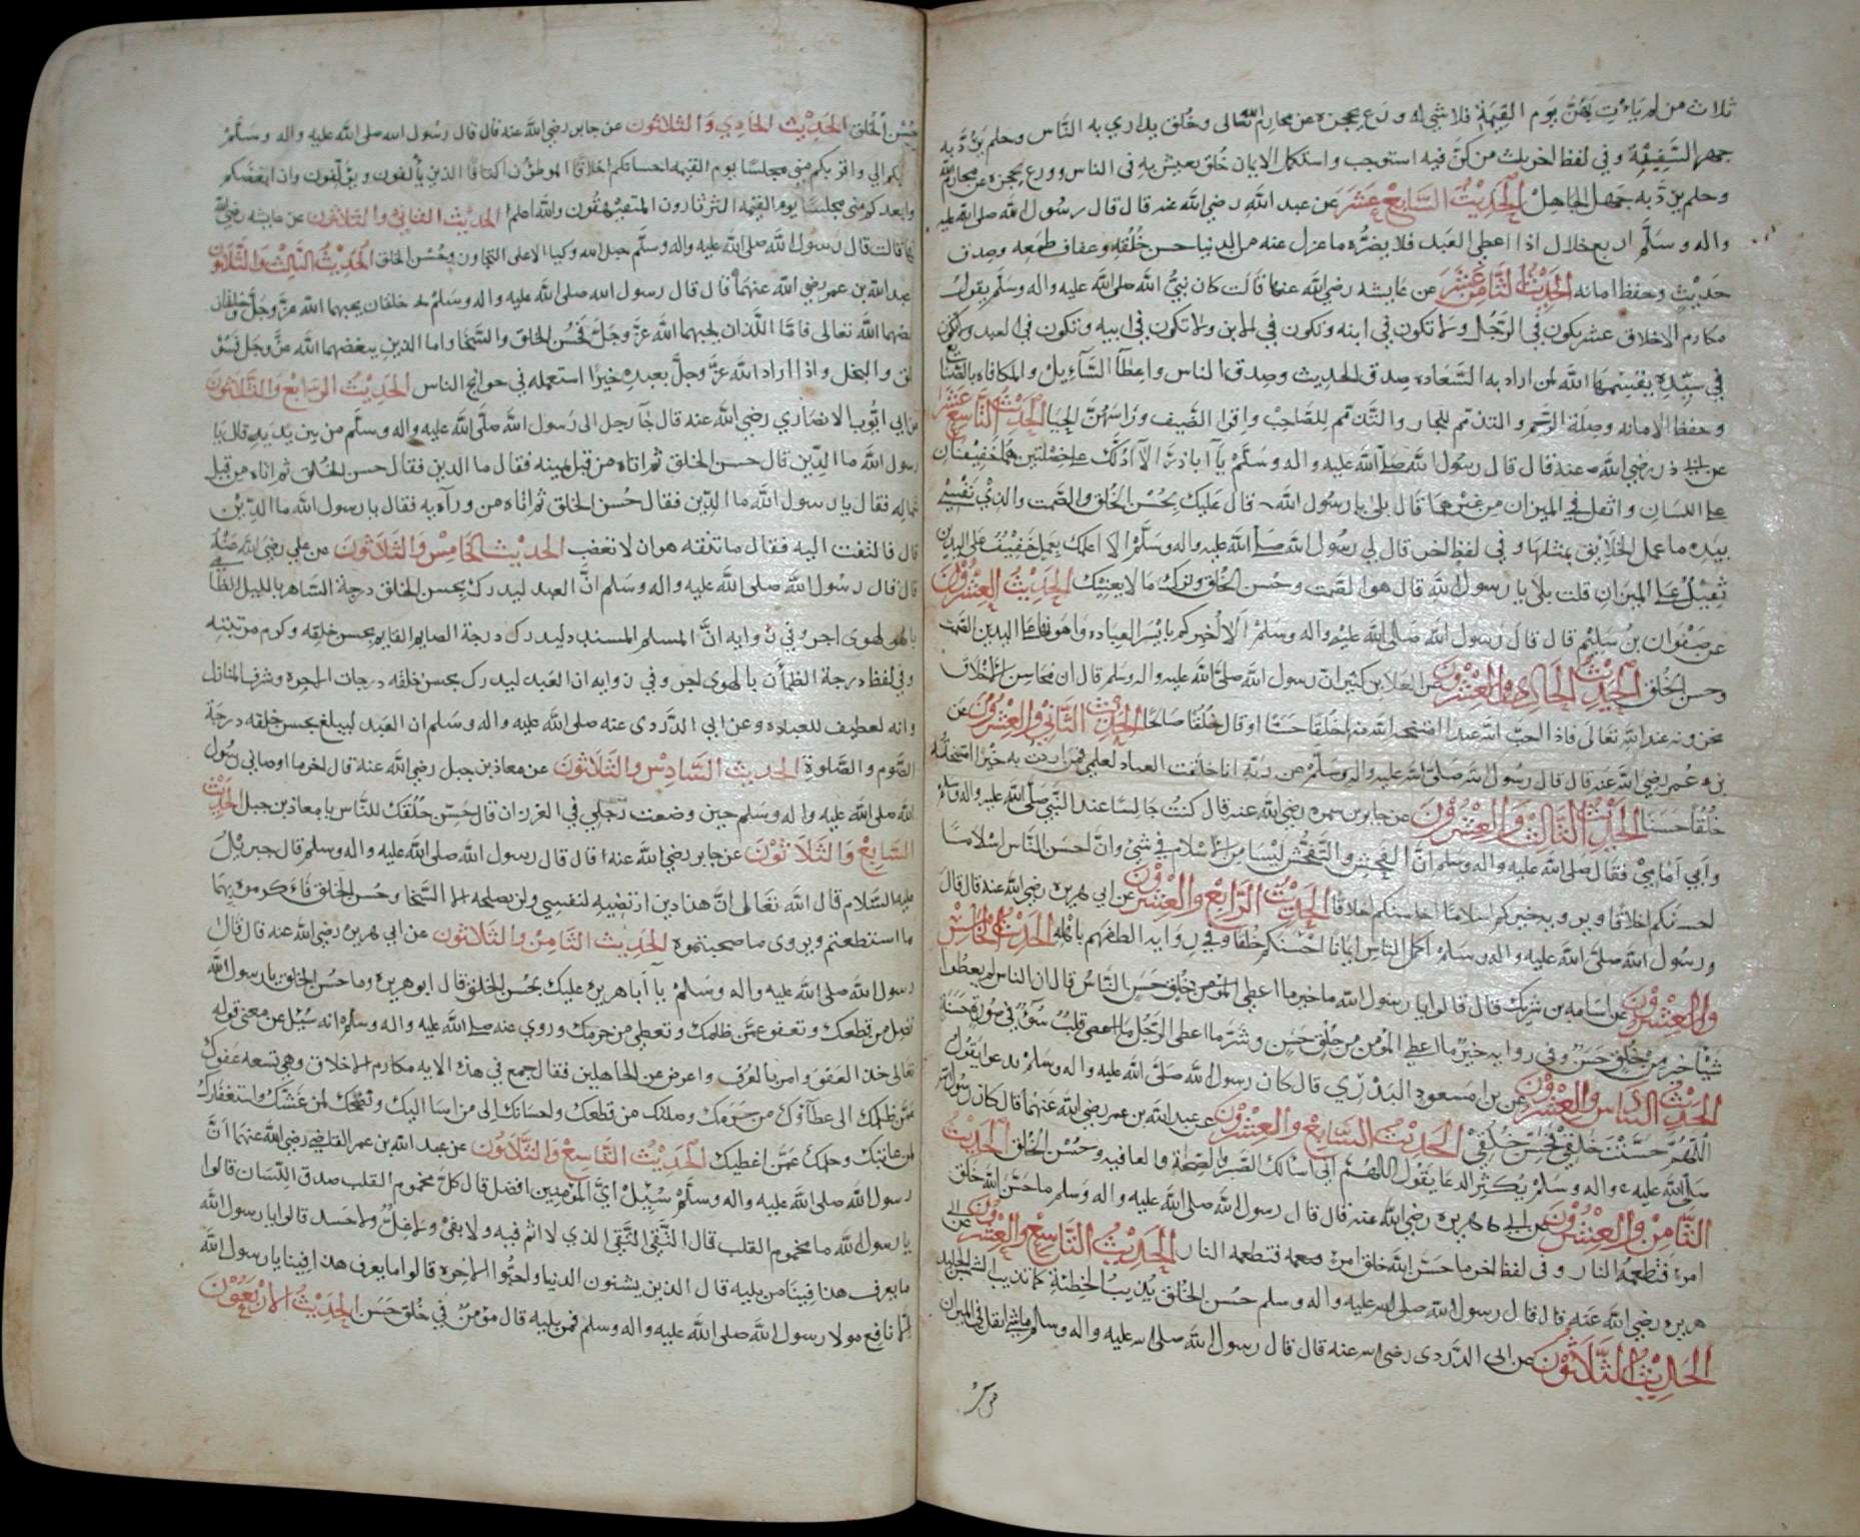 ثلاث من لم يات بهن يوم القيمة فلا شي له ورع يحجزه عن محارم الله تعالى وخلق يداري به الناس وحلم يرد به
جهل السفيه وفي لفظ اخر ثلث من كن فيه استوجب واستكمل الايمان خلق يعيش به في الناس وورع يحجزه عن محارم الله
وحلم يرد به جهل الجاهل الحديث السابع عشر عن عبد الله رضي الله عنه قال قال رسول الله صلى الله عليه
واله وسلم اربع خلال اذا اعطي العبد فلا يضره ما عزل عنه من الدنيا حسن خلقه وعفاف طمعه وصدق
حديث وحفظ امانه الحديث الثامن عشر عن عايشه رضي الله عنها قالت كان نبي الله صلى الله عليه واله وسلم يقول
مكارم الاخلاق عشر يكون في الرجل ولا تكون في ابنه وتكون في الابن ولا تكون في ابيه وتكون في العبد ولا تكون
في سيده يقسمها الله لمن اراد به السعاده صدق الحديث وصدق الناس واعطا السائل والمكافاه بالصنايع
وحفظ الامانه وصلة الرحم والتذمم للجار والتذمم للصاحب واقرا الضيف وراسهن الحيا الحديث التاسع عشر
عن ابي ذر رضي الله عنه قال قال رسول الله صلى الله عليه واله وسلم يا ابا ذر الا ادلك على خصلتين هما خفيفتان
على اللسان واثقل في الميزان من غيرهما قال بلى يا رسول الله قال عليك بحسن الخلق والصمت والذي نفسي
بيده ما عمل الخلايق بمثلها وفي لفظ اخر قال لي رسول الله صلى الله عليه واله وسلم الا اعلمك بعمل خفيف على البدن
ثقيل على الميزان قلت بلى يا رسول الله قال هو الصمت وحسن الخلق وترك ما لا يعنيك الحديث العشرون
عن صفوان بن سليم قال قال رسول الله صلى الله عليه واله وسلم الا اخبركم بايسر العباده واهونها على البدن الصمت
وحسن الخلق الحديث الحادي والعشرون عن العلا بن كثير ان رسول الله صلى الله عليه واله وسلم قال ان محاسن الاخلاق
مخزونه عند الله تعالى فاذا احب الله عبدا منحه الله منها خلقا حسنا او قال خلقا صالحا الحديث الثاني والعشرون عن
عمر رضي الله عنه قال قال رسول الله صلى الله عليه واله وسلم عن ربه انا خلقت العباد لعلمي فمن اردت به خيرا منحته
خلقا حسنا الحديث الثالث والعشرون عن جابر بن سمره رضي الله عنه قال كنت جالسا عند النبي صلى الله عليه واله وسلم
وابي امامي فقال صلى الله عليه واله وسلم ان الفحش والتفحش ليسا من الاسلام في شي وان احسن الناس اسلاما
احسنكم اخلاقا ويروى خيركم اسلاما احاسنكم اخلاقا الحديث الرابع والعشرون عن ابي هريره رضي الله عنه قال قال
رسول الله صلى الله عليه واله وسلم اكمل الناس ايمانا احسنكم خلقا وفي روايه الطفهم باهله الحديث الخامس
والعشرون عن اسامه بن شريك قال قالوا يا رسول الله ما خير ما اعطي المومن خلق حسن الناس قال ان الناس لم يعطوا
شيا خير من خلق حسن وفي روايه خير ما اعطي المومن من خلق حسن وشر ما اعطي الرجل قلب سوء في صورة حسنة
الحديث السادس والعشرون عن ابن مسعود البدري قال كان رسول الله صلى الله عليه واله وسلم يدعو يقول
اللهم حسنت خلقي فحسن خلقي الحديث السابع والعشرون عن عبد الله بن عمر رضي الله عنهما قال كان رسول الله
صلى الله عليه واله وسلم يكثر الدعا يقول اللهم اني اسالك الصبر والصحة والعافيه وحسن الخلق الحديث
الثامن والعشرون عن ابي هريره رضي الله عنه قال قال رسول الله صلى الله عليه واله وسلم ما حسن الله خلق
امرء فتطعمه النار وفي لفظ اخر ما حسن الله خلق امرء فتطعمه النار الحديث التاسع والعشرون عن ابي
هريره رضي الله عنه قال قال رسول الله صلى الله عليه واله وسلم حسن الخلق يذيب الخطئة كما تذيب الشمس الجليد
الحديث الثلاثون عن ابي الدردى رضي الله عنه قال قال رسول الله صلى الله عليه واله وسلم ما شي اثقل في الميزان
من
حسن الخلق الحديث الحادي والثلاثون عن جابر رضي الله عنه قال قال رسول الله صلى الله عليه واله وسلم
الي واقربكم مني مجلسا يوم القيمه احسانكم اخلاقا الموطون اكنافا الذين يألفون ويؤلفون وان ابغضكم
وابعدكم مني مجلسا يوم القيمة الثرثارون المتفيهقون والله اعلم الحديث الثاني والثلاثون عن عايشه رضي الله
عنها قالت قال رسول الله صلى الله عليه واله وسلم ما جبل الله وليا الا على وحسن الخلق الحديث الثالث والثلاثون
عبد الله بن عمر رضي الله عنهما قال قال رسول الله صلى الله عليه واله وسلم خلقان يحبهما الله عز وجل وخلقان
يبغضهما الله تعالى فاما اللذان يحبهما الله عز وجل فحسن الخلق والسخا واما الذين يبغضهما الله عز وجل فسوء
الخلق والبخل واذا اراد الله عز وجل بعبده خيرا استعمله في حوايج الناس الحديث الرابع والثلاثون
عن ابي ايوب الانصاري رضي الله عنه قال جا رجل الى رسول الله صلى الله عليه واله وسلم من بين يديه قال يا
رسول الله ما الدين قال حسن الخلق ثم اتاه من قبل يمينه فقال ما الدين فقال حسن الخلق ثم اتاه من قبل
شماله فقال يا رسول الله ما الدين فقال حسن الخلق ثم اتاه من ورآءه فقال يا رسول الله ما الدين
قال فالتفت اليه فقال ما تفقه هو ان لا تغضب الحديث الخامس والثلاثون عن علي رضي الله عنه
قال قال رسول الله صلى الله عليه واله وسلم ان العبد ليدرك بحسن الخلق درجة الساهر بالليل الظا
بالهواجر وفي روايه ان المسلم المسدد ليدرك درجة الصايم القايم بحسن خلقه وكرم مرتبته
وفي لفظ درجة الظمأن بالهواجر وفي روايه ان العبد ليدرك بحسن خلقه درجات الاخره وشرف المنازل
وانه لضعيف للعباده وعن ابي الدردى عنه صلى الله عليه واله وسلم ان العبد ليبلغ بحسن خلقه درجة
الصوم والصلوة الحديث السادس والثلاثون عن معاذ بن جبل رضي الله عنه قال اخر ما اوصاني رسول
الله صلى الله عليه واله وسلم حين وضعت رجلي في الغرز ان قال حسن خلقك للناس يا معاذ بن جبل الحديث
السابع والثلاثون عن جابر رضي الله عنه قال قال رسول الله صلى الله عليه واله وسلم قال جبريل
عليه السلام قال الله تعالى ان هذا دين ارتضيه لنفسي ولن يصلحه الا السخا وحسن الخلق فاكرموه بهما
ما استطعتم ويروى ما صحبتموه الحديث الثامن والثلاثون عن ابي هريره رضي الله عنه قال قال
رسول الله صلى الله عليه واله وسلم يا ابا هريره عليك بحسن الخلق قال ابو هريره وما حسن الخلق يا رسول الله
تصل من قطعك وتعفو عمن ظلمك وتعطي من حرمك وروي عنه صلى الله عليه واله وسلم انه سئل عن معنى قوله
تعالى خذ العفو وامر بالعرف واعرض عن الجاهلين فقال جمع في هذه الايه مكارم الاخلاق وهي تسعه عفوك
عمن ظلمك الى عطاوك من حرمك وصلتك من قطعك واحسانك الى من اسا اليك ونصحك لمن غشك واستغفارك
لمن عابك وحلمك عمن اغضبك الحديث التاسع والثلاثون عن عبد الله بن عمر رضي الله عنهما ان
رسول الله صلى الله عليه واله وسلم سئل اي المومنين افضل قال كل مخموم القلب صدق اللسان قالوا
يا رسول الله ما مخموم القلب قال التقي النقي الذي لا اثم فيه ولا بغي ولا غل ولا حسد قالوا يا رسول الله
ما يعرف هذا فينا من يليه قال الذين يشنون الدنيا ولحبوا الاخره قالوا ما يعرف هذا فينا يا رسول الله
الا نافع مولا رسول الله صلى الله عليه واله وسلم فمن يليه قال مؤمن في خلق حسن الحديث الاربعون